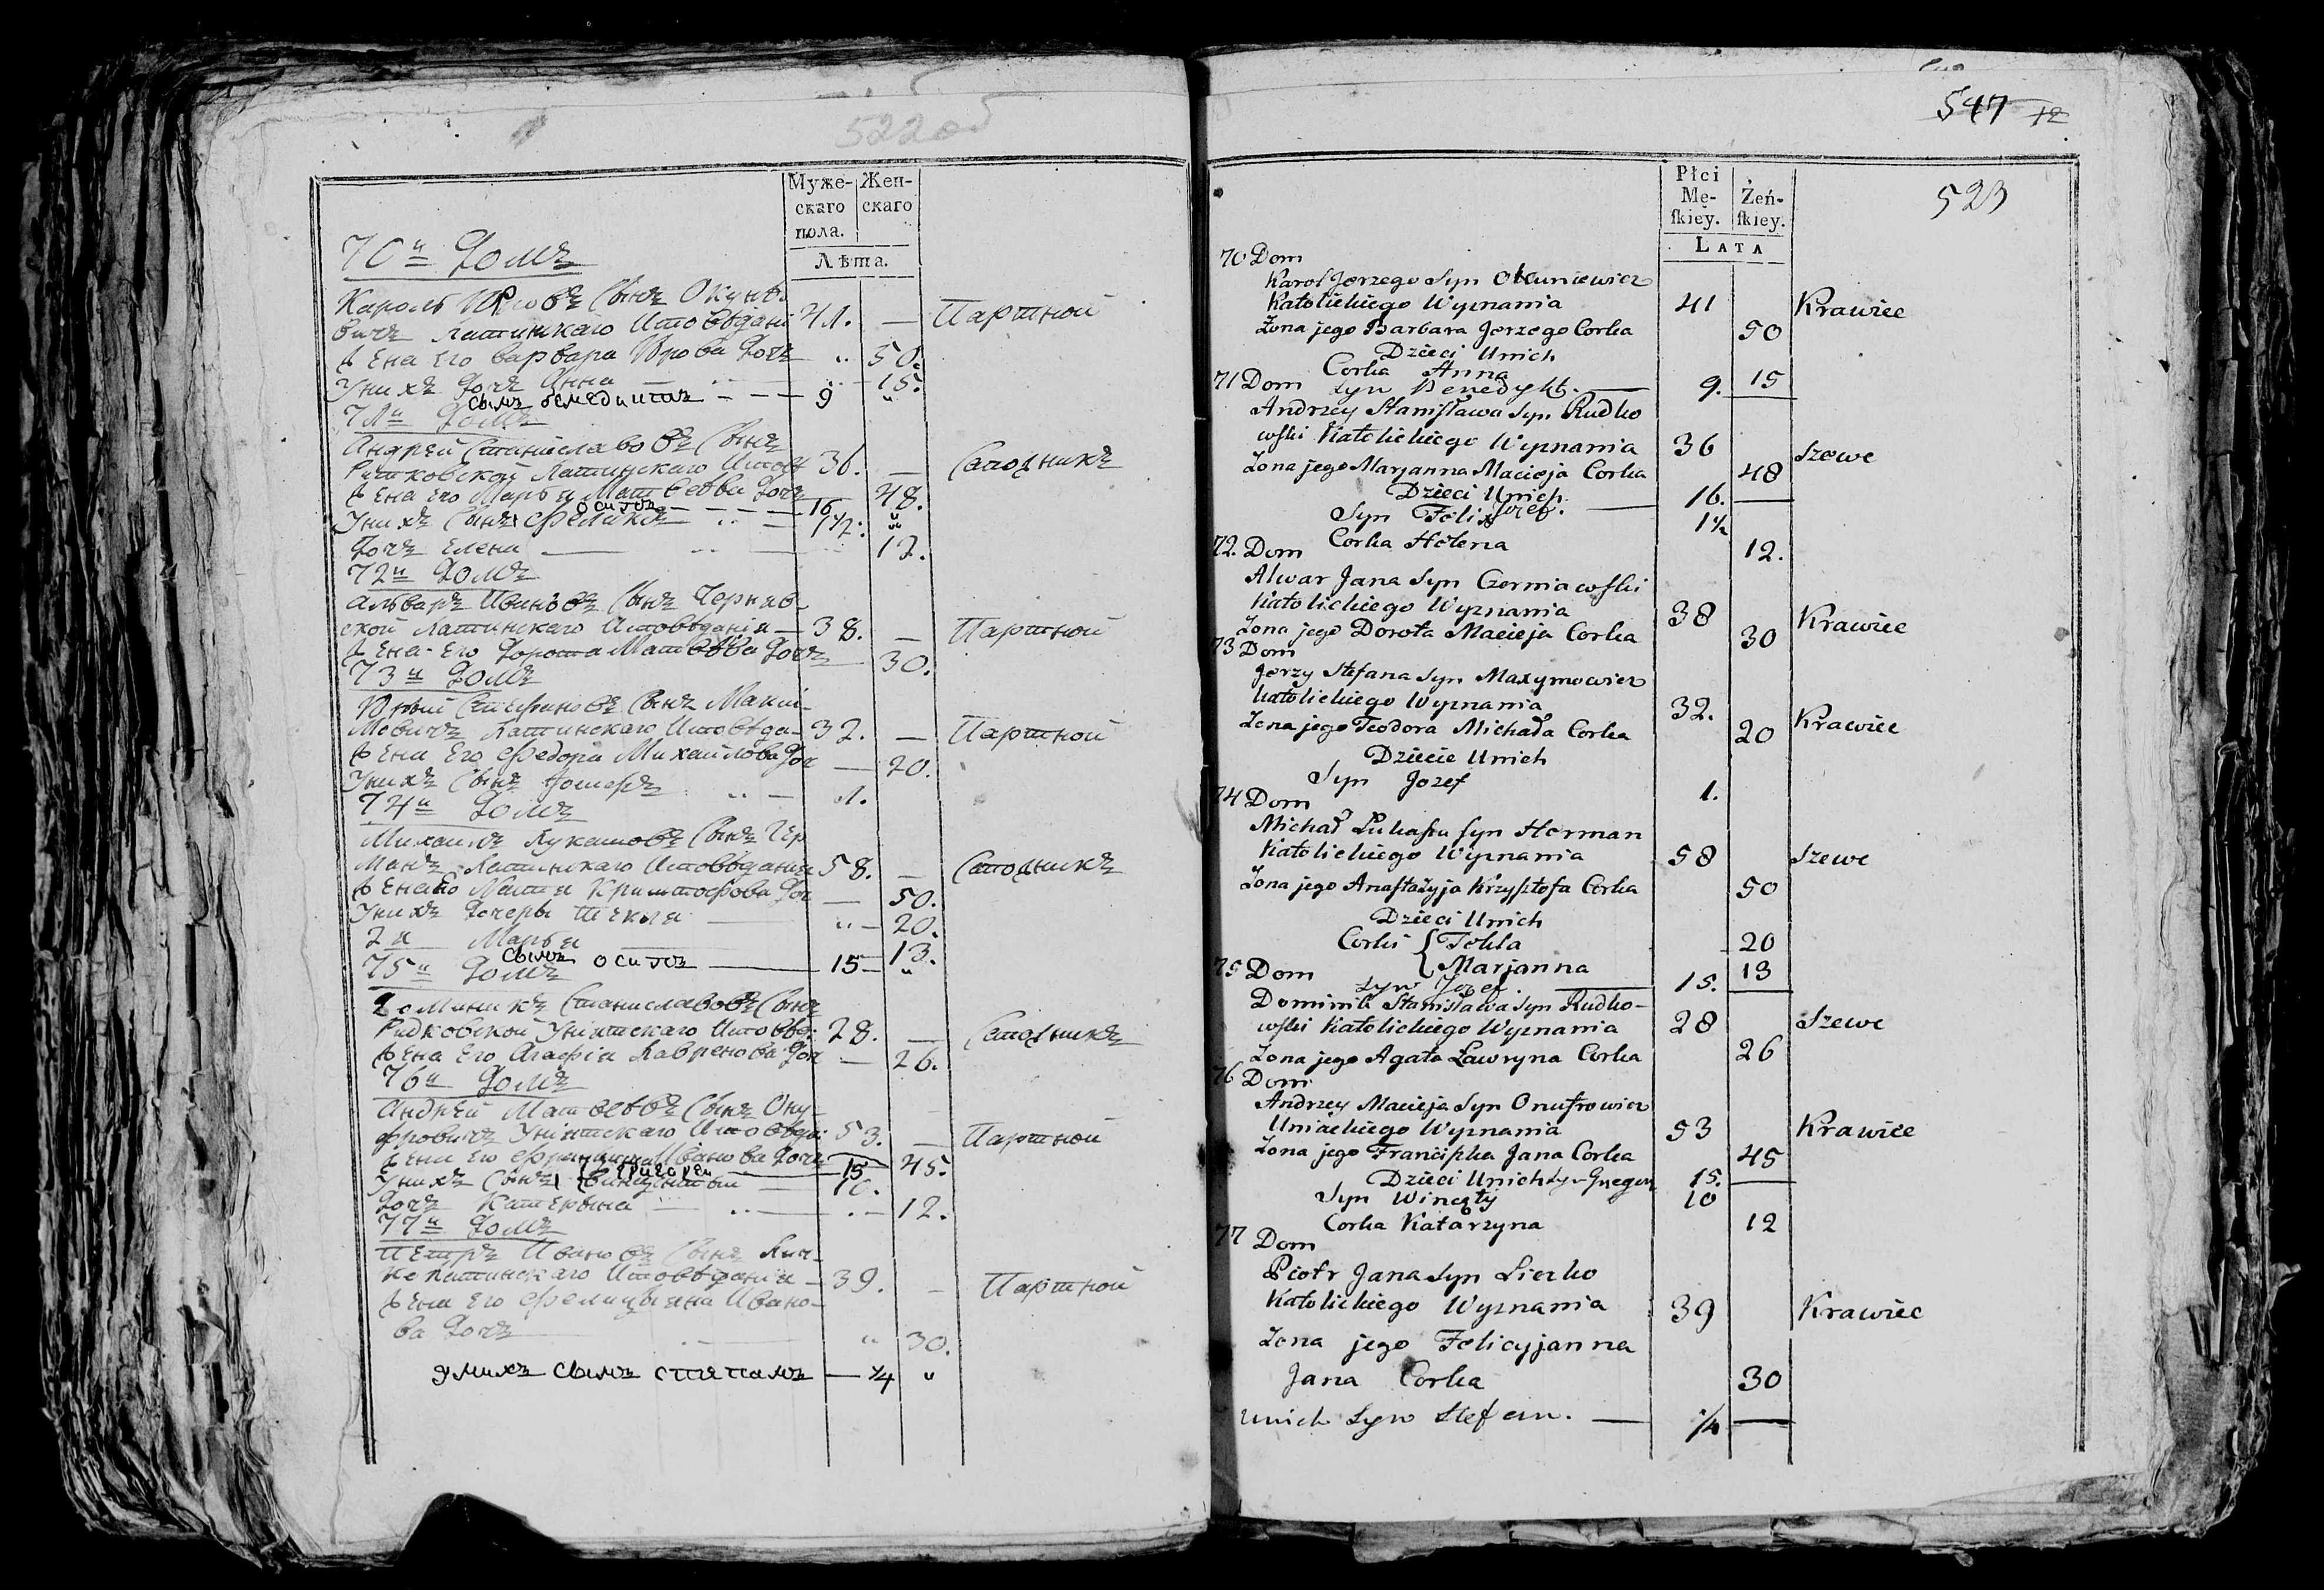 522об
Муже-
скаго
пола.
Жен-
скаго
Лѣта.
70й Домъ
Кароль Юрьовъ Сынъ Окуне-
вичъ Латинскаго Исповѣдані 41. — Партной
Жена Его Варвара Юрова Дочъ " 50.
Унихъ Дочъ Анна — 15.
сынъ бенедиктъ - - - 9 "
71й Домъ
Андрей Станиславовъ Сынъ
Рутковской Латинскаго Испов 36. — Сапожникъ
Жена Его Марья Матвеева Дочъ 48.
осипъ - - - - 16 "
Унихъ Сынъ Феликсъ 1½. "
Дочъ Елена — 12.
72й Домъ
Альваръ Ивановъ Сынъ Черняв-
ской Латинскаго Исповѣданія — 38. — Партной
Жена Его Дорота Матвѣева Дочъ — 30.
73й Домъ
Юрый Стефановъ Сынъ Макси-
мовичъ Латинскаго Исповѣда- 32. — Партной
Жена Его Федора Михайлова Доч — 20.
Унихъ Сынъ Іосефъ 1.
74й Домъ
Михаилъ Лукашовъ Сынъ Гер
манъ Латинскаго Исповѣдания 58. — Сапожникъ
Жена Его Настя Криштофова Доч — 50.
Унихъ Дочеры Текля " — 20.
2я Марья 13.
Сынъ осипъ — 15 — "
75й Домъ
Доминикъ Станиславовъ Сынъ
Рудковской Уніятскаго Исповѣд: 28. — Сапожникъ
Жена Его Агафія Лавренова Доч — 26.
76й Домъ
Андрей Матвеевъ Сынъ Ону-
фровичъ Уніятскаго Исповѣда: 53. — Партной
Жена Его Францишка Иванова Дочъ 45.
григорей 15
Унихъ Сынъ Винцентый — 10.
Дочъ Катерына — 12.
77й Домъ
Петръ Ивановъ Сынъ Лич-
ко Латинскаго Исповѣданія — 39. — Партной
Жена Его Фелицыяна Ивано-
ва Дочъ " 30.
Унихъ сынъ степанъ — ¼ "
547 12
523
Płci
Mę-
ſkiey.
Żeń-
ſkiey.
LATA
70 Dom
Karol Jerzego Syn Okuniewicz
Katolickiego Wyznania 41 Krawiec
Żona jego Barbara Jerzego Corka 50
Dzieci Unich
Corka Anna 15
Syn Benedykt. — 9. —
71 Dom
Andrzey Stanisława Syn Rudko
wſki Katolickiego Wyznania 36 Szewc
Żona jego Maryanna Macieja Corka 48
Dzieci Unich
Jozef. — 16. —
Syn Felix 1½
Corka Helena 12.
72. Dom
Alwar Jana Syn Czerniawſki
Katolickiego Wyznania 38 Krawiec
Żona jego Dorota Macieja Corka 30
73 Dom
Jerzy Stefana Syn Maxymowicz
Katolickiego Wyznania 32. Krawiec
Żona jego Teodora Michała Corka 20
Dziecie Unich
Syn Jozef 1.
74 Dom
Michał Łukaſza Syn Herman
Katolickiego Wyznania 58 Szewc
Żona jego Anaſtazyja Krzyſztofa Corka 50
Dzieci Unich
Corki { Tekla 20
Marjanna 13
Syn Jozef. — 15. —
75 Dom
Dominik Stanisława Syn Rudko-
wſki Katolickiego Wyznania 28 Szewc
Żona jego Agata Ławryna Corka 26
76 Dom
Andrzey Macieja Syn Onufrowicz
Uniackiego Wyznania 53 Krawiec
Żona jego Franciſzka Jana Corka 45
Dzieci Unich Syn Gregor 15. —
Syn Winczty 10
Corka Katarzyna 12
77 Dom
Piotr Jana Syn Liczko
Katolickiego Wyznania 39 Krawiec
Żona jego Felicyjanna
Jana Corka 30
Unich Syn Stefan. — ¼ —